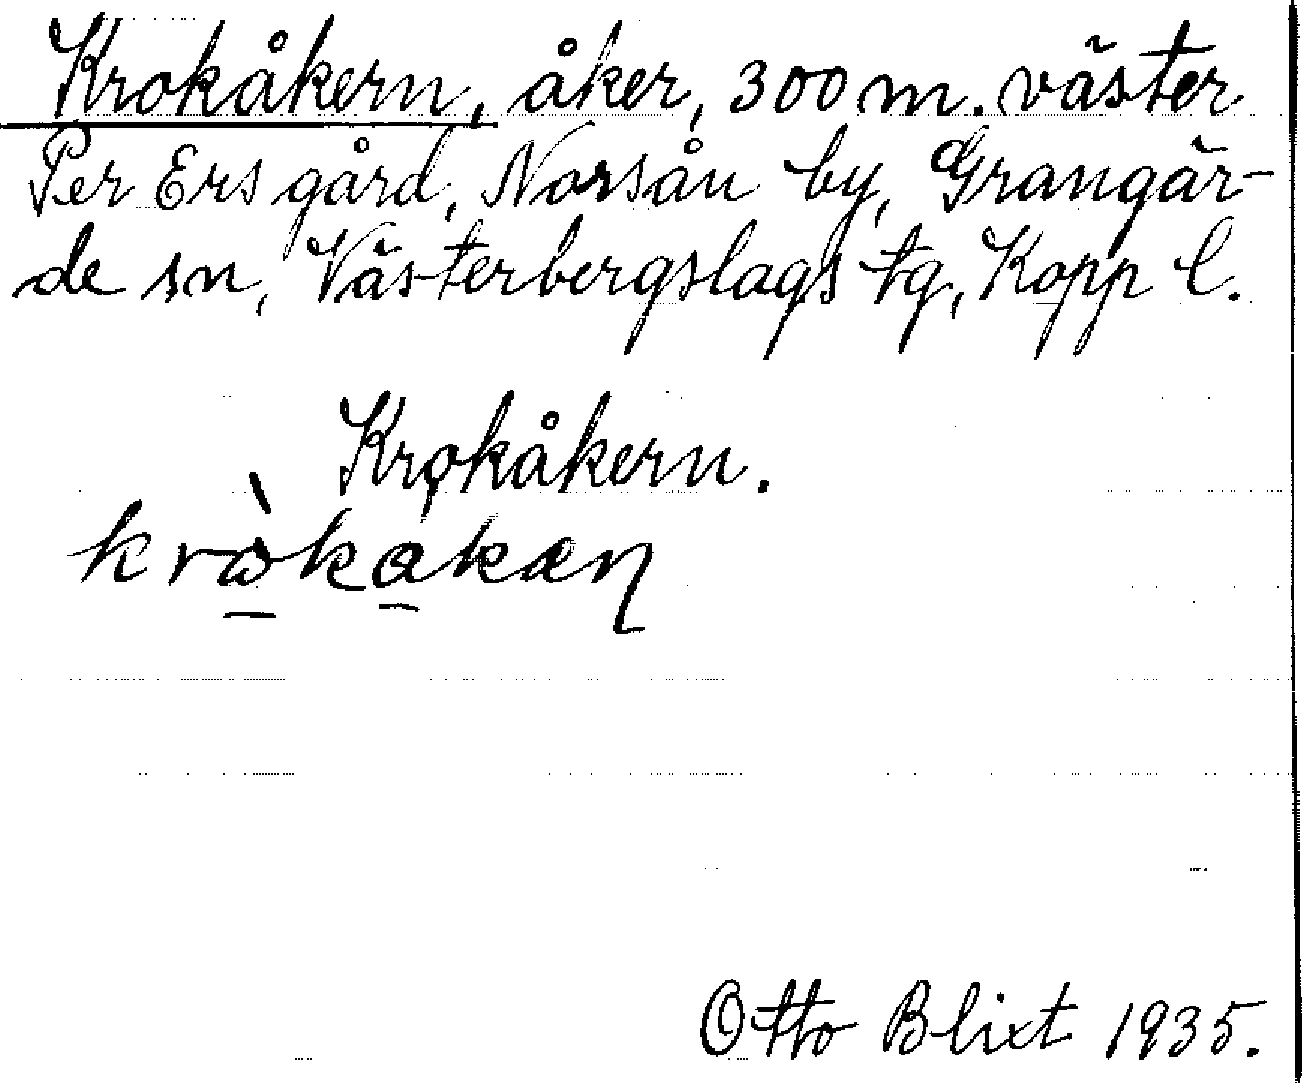 Krokåkern, åker, 300 m. väster
Per Ers gård, Norsån by, Grangär-
de sn, Västerbergslags tg, Kopp l.
Krǫkåkern.
krὼ̲ka̲kæɳ
Otto Blixt 1935.